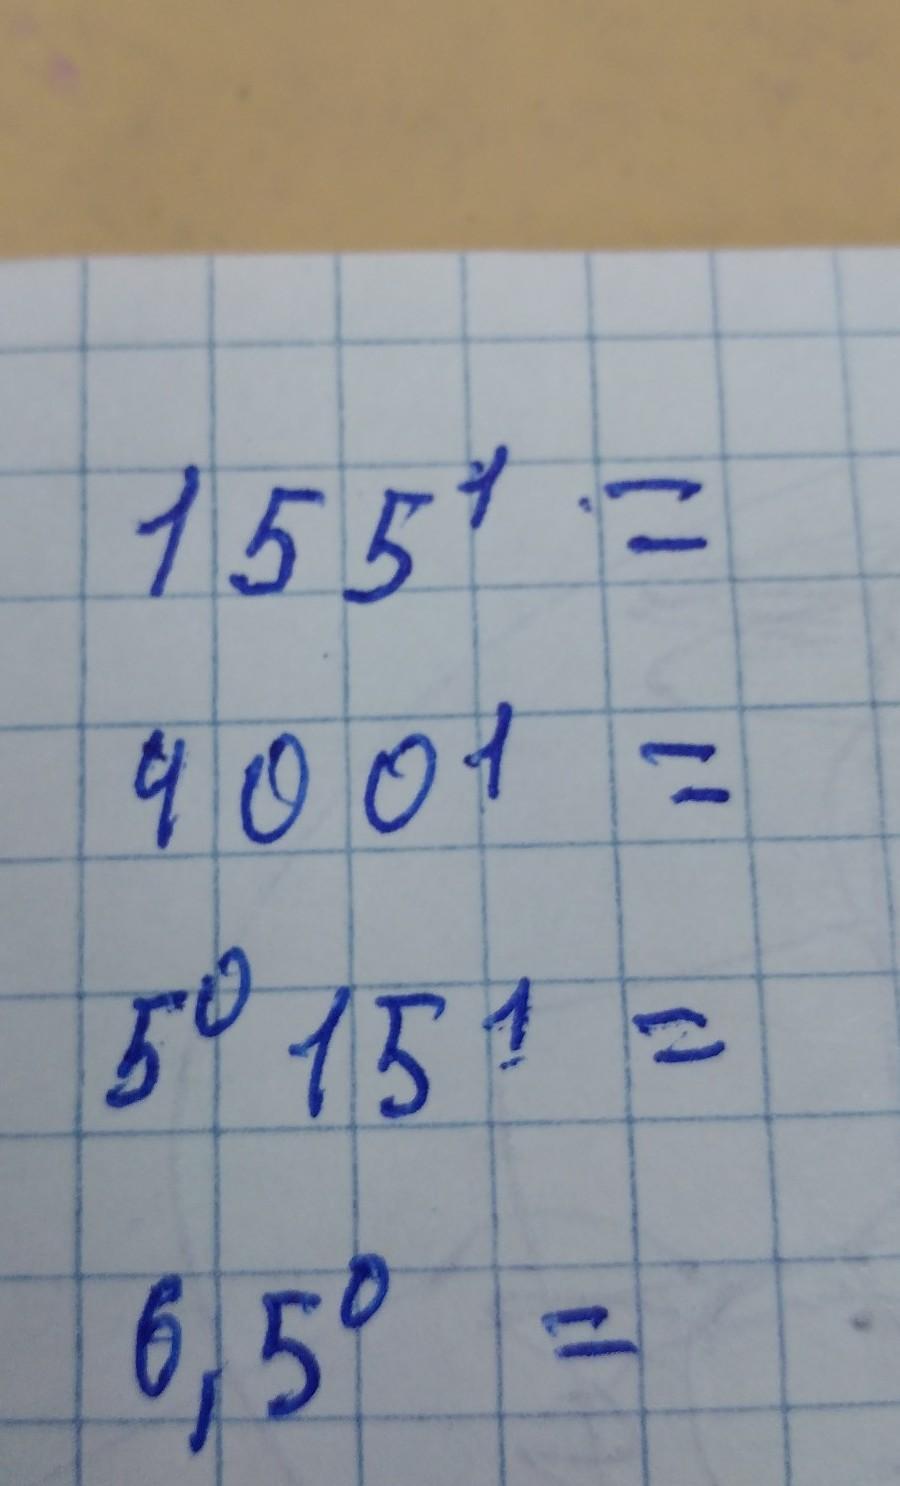 155¹ =
400¹ =
5⁰ 15¹ =
6,5⁰ =